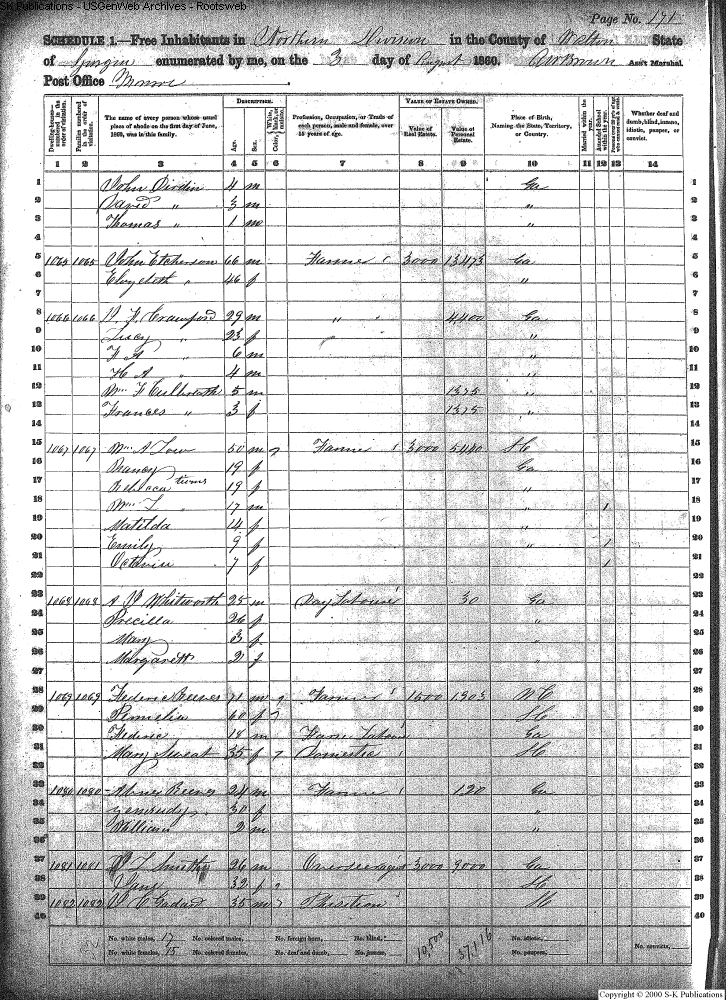 S-K Publications - USGenWeb Archives - Rootsweb
Page No. 171
SCHEDULE 1.—Free Inhabitants in Northern Division in the County of Walton State
of Georgia enumerated by me, on the 3 day of August 1860. AW Brown Ass't Marshal.
Post Office Monroe
Dwelling-houses—numbered in the order of visitation.
Families numbered in the order of visitation.
The name of every person whose usual place of abode on the first day of June, 1860, was in this family.
DESCRIPTION.
Age.
Sex.
Color, White, black, or mulatto.
Profession, Occupation, or Trade of each person, male and female, over 15 years of age.
VALUE OF ESTATE OWNED.
Value of Real Estate.
Value of Personal Estate.
Place of Birth, Naming the State, Territory, or Country.
Married within the year.
Attended School within the year.
Whether deaf and dumb, blind, insane, idiotic, pauper, or convict.
1 2 3 4 5 6 7 8 9 10 11 12 13 14
1 John 4 m Ga 1
2 David " 3 m " 2
3 Thomas " 1 m " 3
4 4
5 1065 1065 John Etcherson 66 m Farmer 3000 13473 Ga 5
6 Elizabeth " 46 f " 6
7 7
8 1066 1066 Crawford 29 m " " 4,400 Ga 8
9 Lucy " 23 f " 9
10 " 6 m " 10
11 H A " 4 m " 11
12 Wm F Culbreath 5 m 1375 " 12
13 Frances " 3 f 1375 " 13
14 14
15 1067 1067 Wm A Low 50 m Farmer 3000 5440 SC 15
16 Nancy 19 f Ga 16
17 Rebecca twins 19 f " 17
18 Wm " 17 m " 1 18
19 Matilda 14 f " 19
20 Emily 9 f " 1 20
21 7 f 1 21
22 22
23 1068 1068 Whitworth 25 m Day Laborer 30 Ga 23
24 Precilla 26 f " 24
25 Mary 3 f " 25
26 Margarett 2 f " 26
27 27
28 1069 1069 Federic Reeves 71 m Farmer 1500 1303 NC 28
29 Permelia 60 f SC 29
30 Federic 18 m Farm Laborer Ga 30
31 Mary Sweat 35 f Domestic SC 31
32 32
33 1080 1080 Abner Reeves 24 m Farmer 120 Ga 33
34 30 f " 34
35 William 2 m " 35
36 36
37 1081 1081 Smith 26 m 3000 9000 Ga 37
38 Jane 32 f SC 38
39 1082 1082 35 m SC 39
40 40
No. white males, 17 No. colored males, No. foreign born, No. blind, 10,500 37,116 No. idiotic, No. convicts,
No. white females, 15 No. colored females, No. deaf and dumb, No. insane, No. paupers,
Copyright © 2000 S-K Publications